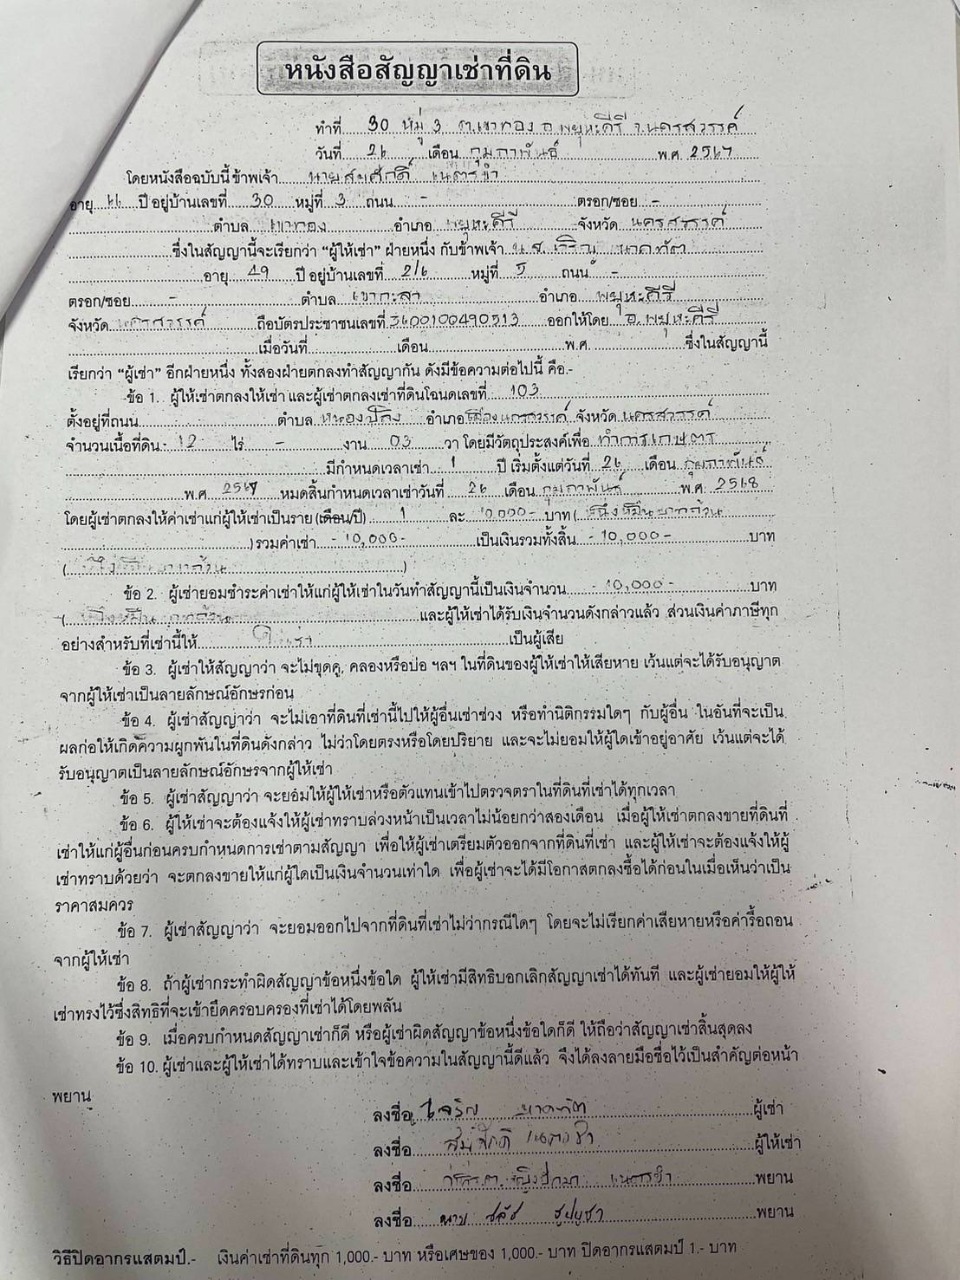 หนังสือสัญญาเช่าที่ดิน
ทำที่ 30 หมู่ 3 ต.เขาทอง อ.พยุหะคีรี จ.นครสวรรค์
วันที่ 26 เดือน กุมภาพันธ์ พ.ศ. 2567
โดยหนังสือฉบับนี้ ข้าพเจ้า นายสมศักดิ์ เนตรขำ
อายุ ปี อยู่บ้านเลขที่ 30 หมู่ที่ 3 ถนน - ตรอก/ซอย -
ตำบล เขาทอง อำเภอ พยุหะคีรี จังหวัด นครสวรรค์
ซึ่งในสัญญานี้จะเรียกว่า "ผู้ให้เช่า" ฝ่ายหนึ่ง กับข้าพเจ้า น.ส.
อายุ 49 ปี อยู่บ้านเลขที่ 2/6 หมู่ที่ 5 ถนน -
ตรอก/ซอย - ตำบล เขากะลา อำเภอ พยุหะคีรี
จังหวัด นครสวรรค์ ถือบัตรประชาชนเลขที่ 3600100490513 ออกให้โดย อ.พยุหะคีรี
เมื่อวันที่ เดือน พ.ศ. ซึ่งในสัญญานี้
เรียกว่า "ผู้เช่า" อีกฝ่ายหนึ่ง ทั้งสองฝ่ายตกลงทำสัญญากัน ดังมีข้อความต่อไปนี้ คือ.-
ข้อ 1. ผู้ให้เช่าตกลงให้เช่า และผู้เช่าตกลงเช่าที่ดินโฉนดเลขที่ 103
ตั้งอยู่ที่ถนน ตำบล หนองปลิง อำเภอ เมืองนครสวรรค์ จังหวัด นครสวรรค์
จำนวนเนื้อที่ดิน - 12 ไร่ - งาน 03 วา โดยมีวัตถุประสงค์เพื่อ ทำการเกษตร
มีกำหนดเวลาเช่า 1 ปี เริ่มตั้งแต่วันที่ 26 เดือน กุมภาพันธ์
พ.ศ. 2567 หมดสิ้นกำหนดเวลาเช่าวันที่ 26 เดือน กุมภาพันธ์ พ.ศ. 2568
โดยผู้เช่าตกลงให้ค่าเช่าแก่ผู้ให้เช่าเป็นราย (เดือน/ปี) 1 ละ 10,000- บาท ( หนึ่งหมื่นบาทถ้วน
) รวมค่าเช่า - 10,000- เป็นเงินรวมทั้งสิ้น - 10,000 - บาท
( หนึ่งหมื่นบาทถ้วน )
ข้อ 2. ผู้เช่ายอมชำระค่าเช่าให้แก่ผู้ให้เช่าในวันทำสัญญานี้เป็นเงินจำนวน - 10,000 - บาท
( หนึ่งหมื่นบาทถ้วน และผู้ให้เช่าได้รับเงินจำนวนดังกล่าวแล้ว ส่วนเงินค่าภาษีทุก
อย่างสำหรับที่เช่านี้ให้ เป็นผู้เสีย
ข้อ 3. ผู้เช่าให้สัญญาว่า จะไม่ขุดคู, คลองหรือบ่อ ฯลฯ ในที่ดินของผู้ให้เช่าให้เสียหาย เว้นแต่จะได้รับอนุญาต
จากผู้ให้เช่าเป็นลายลักษณ์อักษรก่อน
ข้อ 4. ผู้เช่าสัญญาว่า จะไม่เอาที่ดินที่เช่านี้ไปให้ผู้อื่นเช่าช่วง หรือทำนิติกรรมใดๆ กับผู้อื่น ในอันที่จะเป็น
ผลก่อให้เกิดความผูกพันในที่ดินดังกล่าว ไม่ว่าโดยตรงหรือโดยปริยาย และจะไม่ยอมให้ผู้ใดเข้าอยู่อาศัย เว้นแต่จะได้
รับอนุญาตเป็นลายลักษณ์อักษรจากผู้ให้เช่า
ข้อ 5. ผู้เช่าสัญญาว่า จะยอมให้ผู้ให้เช่าหรือตัวแทนเข้าไปตรวจตราในที่ดินที่เช่าได้ทุกเวลา
ข้อ 6. ผู้ให้เช่าจะต้องแจ้งให้ผู้เช่าทราบล่วงหน้าเป็นเวลาไม่น้อยกว่าสองเดือน เมื่อผู้ให้เช่าตกลงขายที่ดินที่
เช่าให้แก่ผู้อื่นก่อนครบกำหนดการเช่าตามสัญญา เพื่อให้ผู้เช่าเตรียมตัวออกจากที่ดินที่เช่า และผู้ให้เช่าจะต้องแจ้งให้ผู้
เช่าทราบด้วยว่า จะตกลงขายให้แก่ผู้ใดเป็นเงินจำนวนเท่าใด เพื่อผู้เช่าจะได้มีโอกาสตกลงซื้อได้ก่อนในเมื่อเห็นว่าเป็น
ราคาสมควร
ข้อ 7. ผู้เช่าสัญญาว่า จะยอมออกไปจากที่ดินที่เช่าไม่ว่ากรณีใดๆ โดยจะไม่เรียกค่าเสียหายหรือค่ารื้อถอน
จากผู้ให้เช่า
ข้อ 8. ถ้าผู้เช่ากระทำผิดสัญญาข้อหนึ่งข้อใด ผู้ให้เช่ามีสิทธิบอกเลิกสัญญาเช่าได้ทันที และผู้เช่ายอมให้ผู้ให้
เช่าทรงไว้ซึ่งสิทธิที่จะเข้ายึดครอบครองที่เช่าได้โดยพลัน
ข้อ 9. เมื่อครบกำหนดสัญญาเช่าก็ดี หรือผู้เช่าผิดสัญญาข้อหนึ่งข้อใดก็ดี ให้ถือว่าสัญญาเช่าสิ้นสุดลง
ข้อ 10. ผู้เช่าและผู้ให้เช่าได้ทราบและเข้าใจข้อความในสัญญานี้ดีแล้ว จึงได้ลงลายมือชื่อไว้เป็นสำคัญต่อหน้า
พยาน
ลงชื่อ ผู้เช่า
ลงชื่อ สมศักดิ์ เนตรขำ ผู้ให้เช่า
ลงชื่อ เนตรขำ พยาน
ลงชื่อ นาย ธูปบูชา พยาน
วิธีปิดอากรแสตมป์.- เงินค่าเช่าที่ดินทุก 1,000.- บาท หรือเศษของ 1,000.- บาท ปิดอากรแสตมป์ 1.- บาท